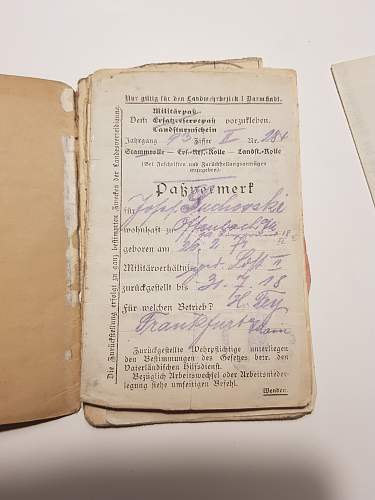 Nur gültig für den Landwehrbezirk I Darmstadt.
Militärpaß
Dem Ersatzreservepaß vorzukleben.
Landsturmschein
Jahrgang 93 Ziffer II Nr. 284
Stammrolle — Ers.-Res.-Rolle — Landst.-Rolle
(Bei Zuschriften und Zurückstellungsanträgen
anzugeben)
Paßvermerk
für Josef Suchowski
wohnhaft zu Offenbach
geboren am 26. 2. 73
Militärverhältnis: Ldst II
zurückgestellt bis 31. 7. 18
Für welchen Betrieb? H. Fey
Frankfurt Main
Zurückgestellte Wehrpflichtige unterliegen
den Bestimmungen des Gesetzes betr. den
Vaterländischen Hilfsdienst.
Bezüglich Arbeitswechsel oder Arbeitsnieder-
legung siehe umseitigen Befehl.
Wenden.
Die Zurückstellung erfolgte zu ganz bestimmten Zwecken der Landesverteidigung.